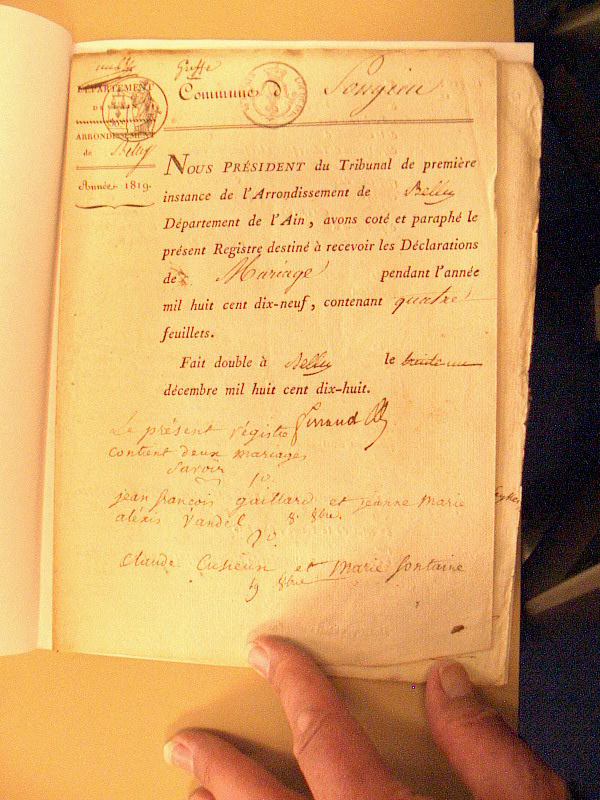 Greffe
DÉPARTEMENT
DE L'AIN
ARRONDISSEMENT
de Belley
Année 1819.
Commune d Songieu
NOUS PRÉSIDENT du Tribunal de première
instance de l'Arrondissement de Belley
Département de l'Ain, avons coté et paraphé le
présent Registre destiné à recevoir les Déclarations
de Mariage pendant l'année
mil huit cent dix-neuf, contenant quatre
feuillets.
Fait double à Belley le trente un
décembre mil huit cent dix-huit.
Le présent régistre
contient deux mariages
Savoir
1o.
jean françois gaillard et jeanne marie
alexis Vandel 8 8bre.
2o.
Claude Cusieun et Marie fontaine
19 8bre